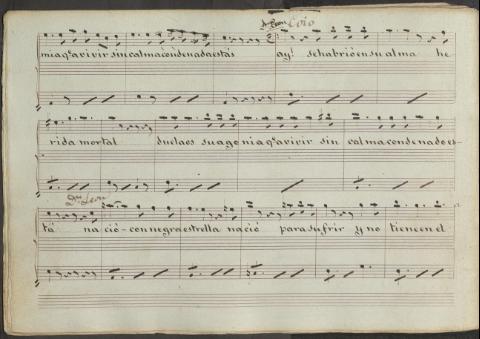 Coro
mia q.e a vivir sin calma condenada estás ay! se habrió en su alma he
rida mortal dulaos su agonia q.e a vivir sin calma condenado es-
D.n Leon
tá nació - con negra estrella nació para sufrir y no tiene en el